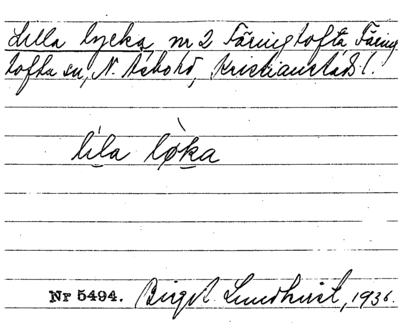 Lilla lycka nr 2 Färingtofta Färing
tofta sn, N. Åsbohd, Kristianstads l.
lila løka
Nr 5494. Birgit Lundqvist, 1936.